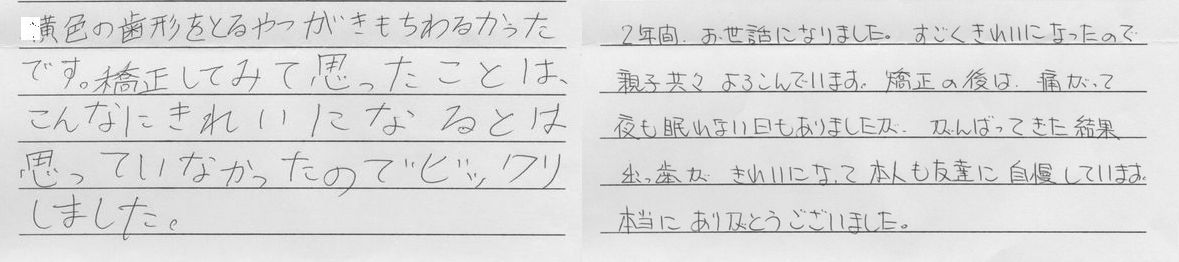 黄色の歯形をとるやつがきもちわるかった
です。矯正してみて思ったことは、
こんなにきれいになるとは
思っていなかったのでビックリ
しました。
2年間、お世話になりました。すごくきれいになったので
親子共々よろこんでいます。矯正の後は、痛がって
夜も眠れない日もありましたが、がんばってきた結果、
出っ歯がきれいになって本人も友達に自慢しています。
本当にありがとうございました。